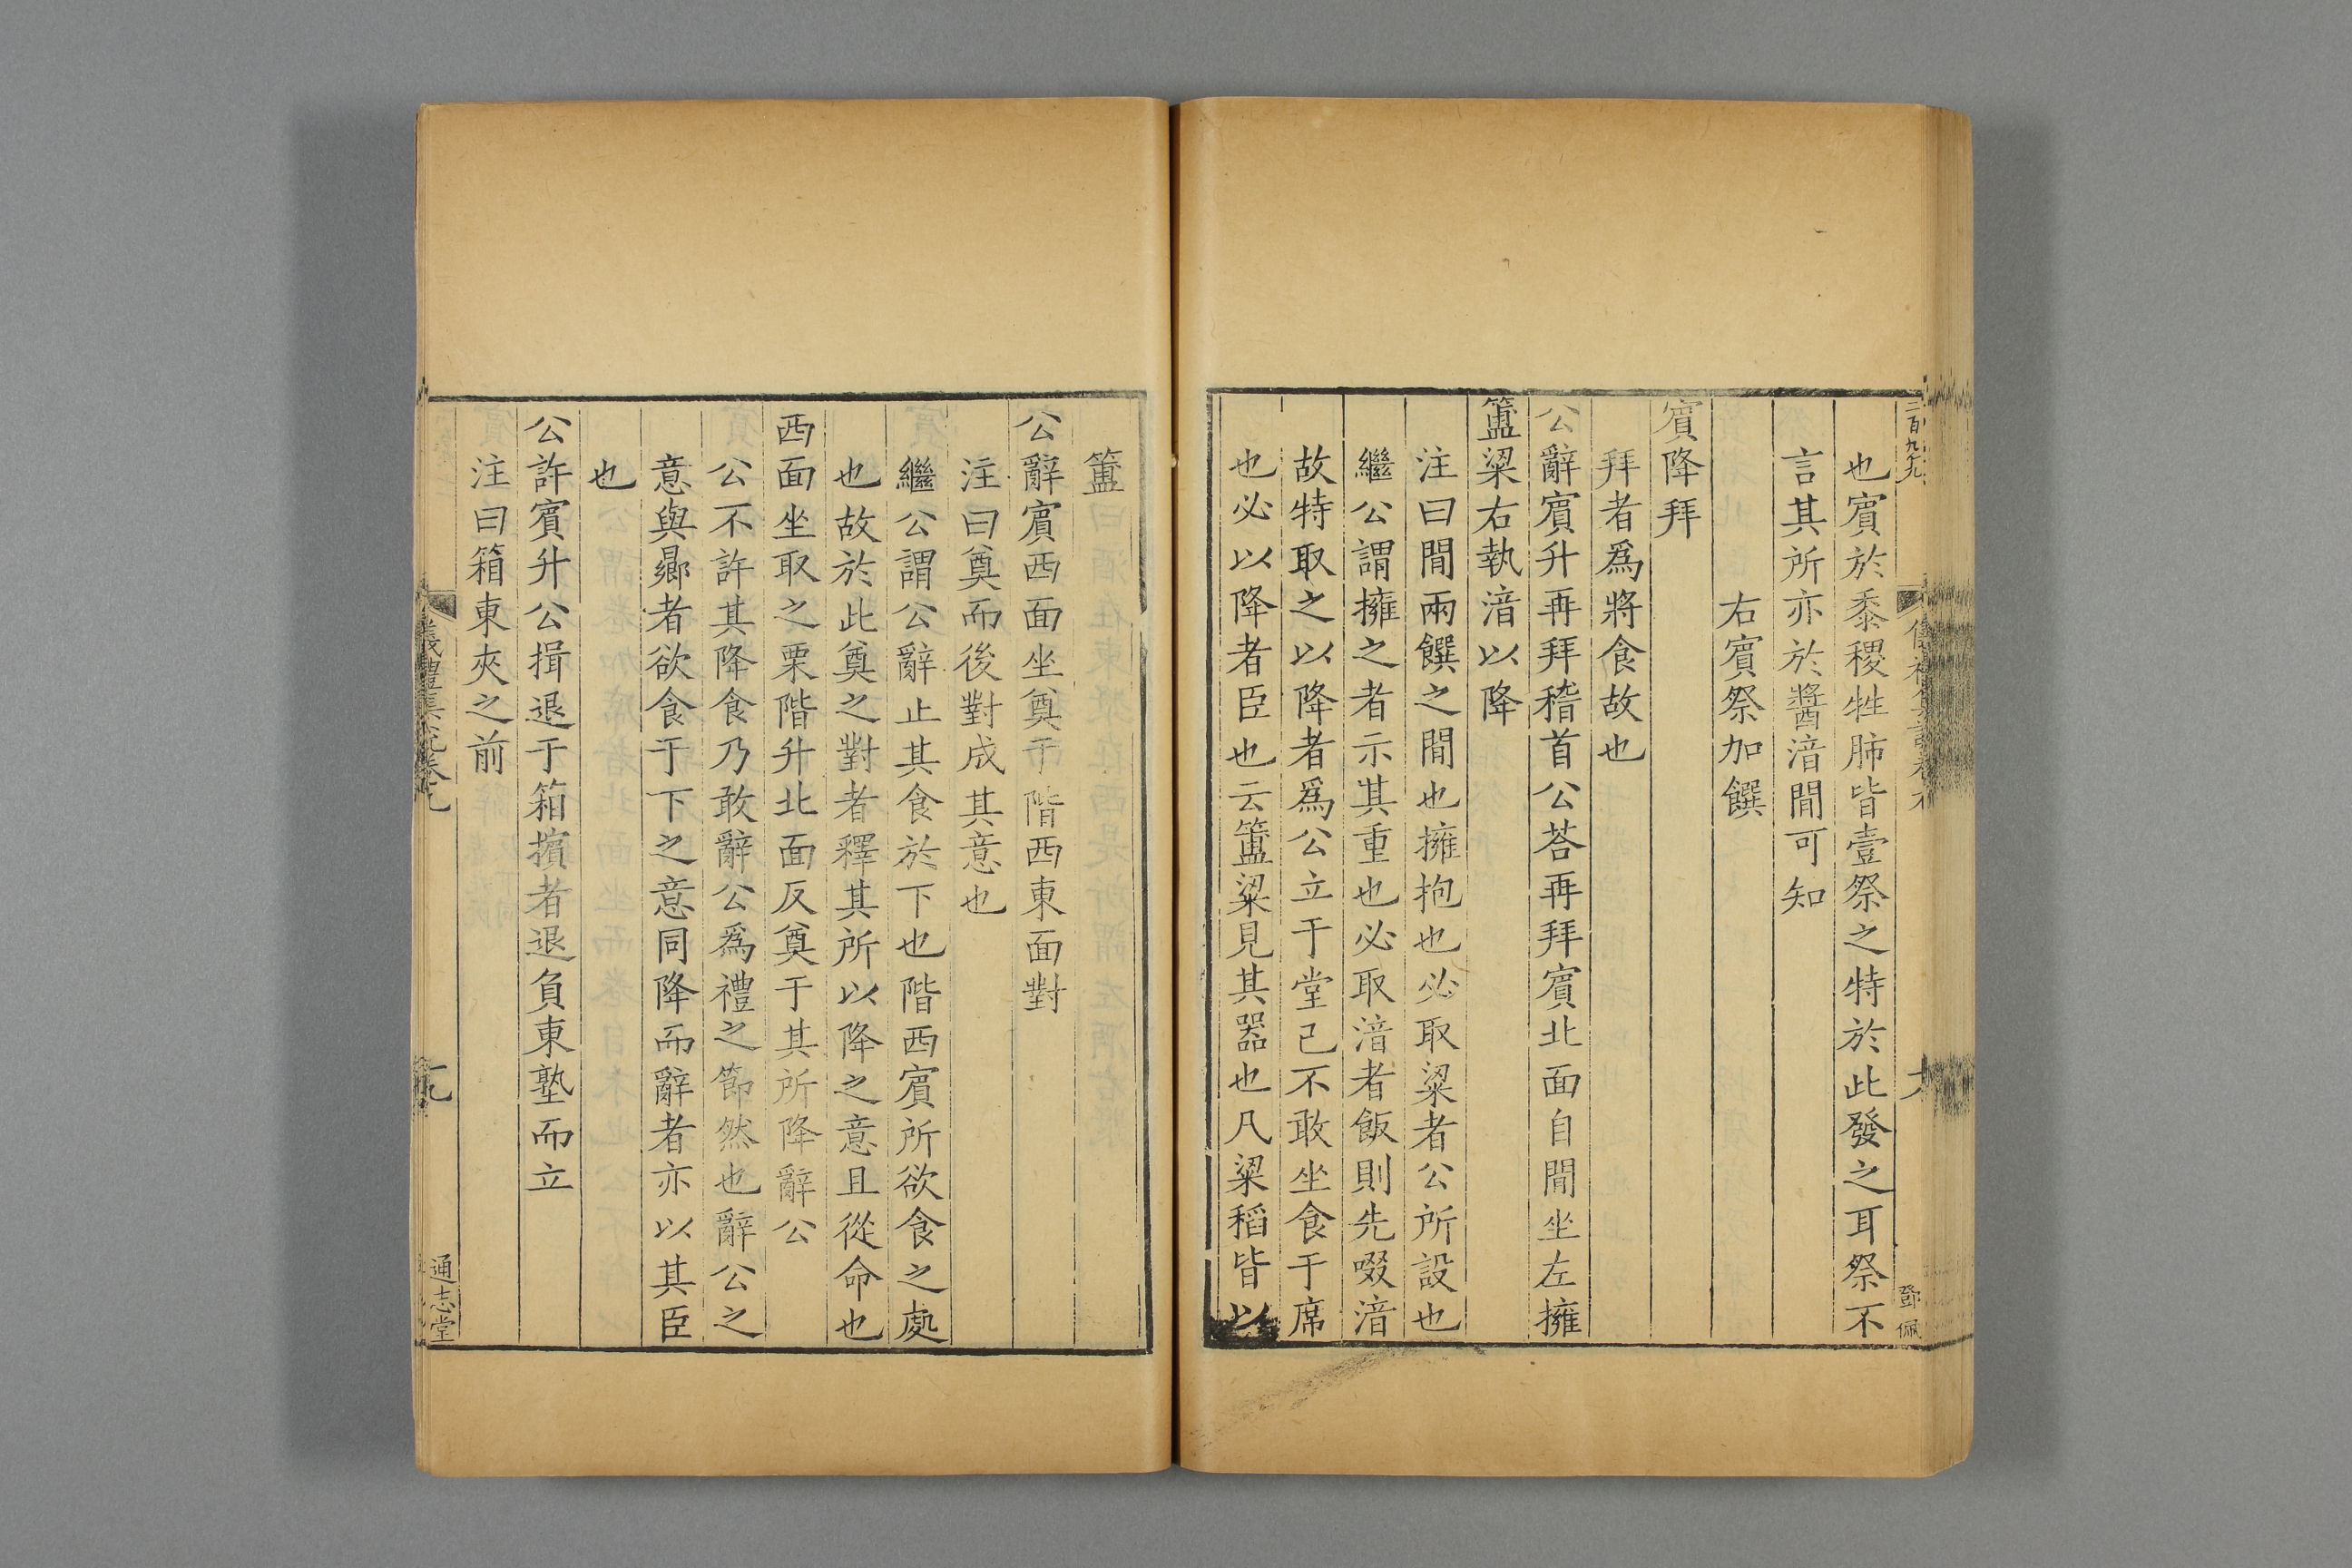 二百九九
鄧佩
也賓於黍稷牲肺皆壹祭之特於此發之耳祭不
言其所亦於醬湆閒可知
右賓祭加饌
賓降拜
拜者爲將食故也
公辭賓升再拜稽首公荅再拜賓北面自閒坐左擁
簠粱右執湆以降
注曰閒兩饌之閒也擁抱也必取粱者公所設也
繼公謂擁之者示其重也必取湆者飯則先啜湆
故特取之以降者爲公立于堂已不敢坐食于席
也必以降者臣也云簠粱見其器也凡粱稻皆以
簠
公辭賓西面坐奠于階西東面對
注曰奠而後對成其意也
繼公謂公辭止其食於下也階西賓所欲食之處
也故於此奠之對者釋其所以降之意且從命也
西面坐取之栗階升北面反奠于其所降辭公
公不許其降食乃敢辭公爲禮之節然也辭公之
意與曏者欲食于下之意同降而辭者亦以其臣
也
公許賓升公揖退于箱擯者退負東塾而立
注曰箱東夾之前
儀禮集說卷九
通志堂